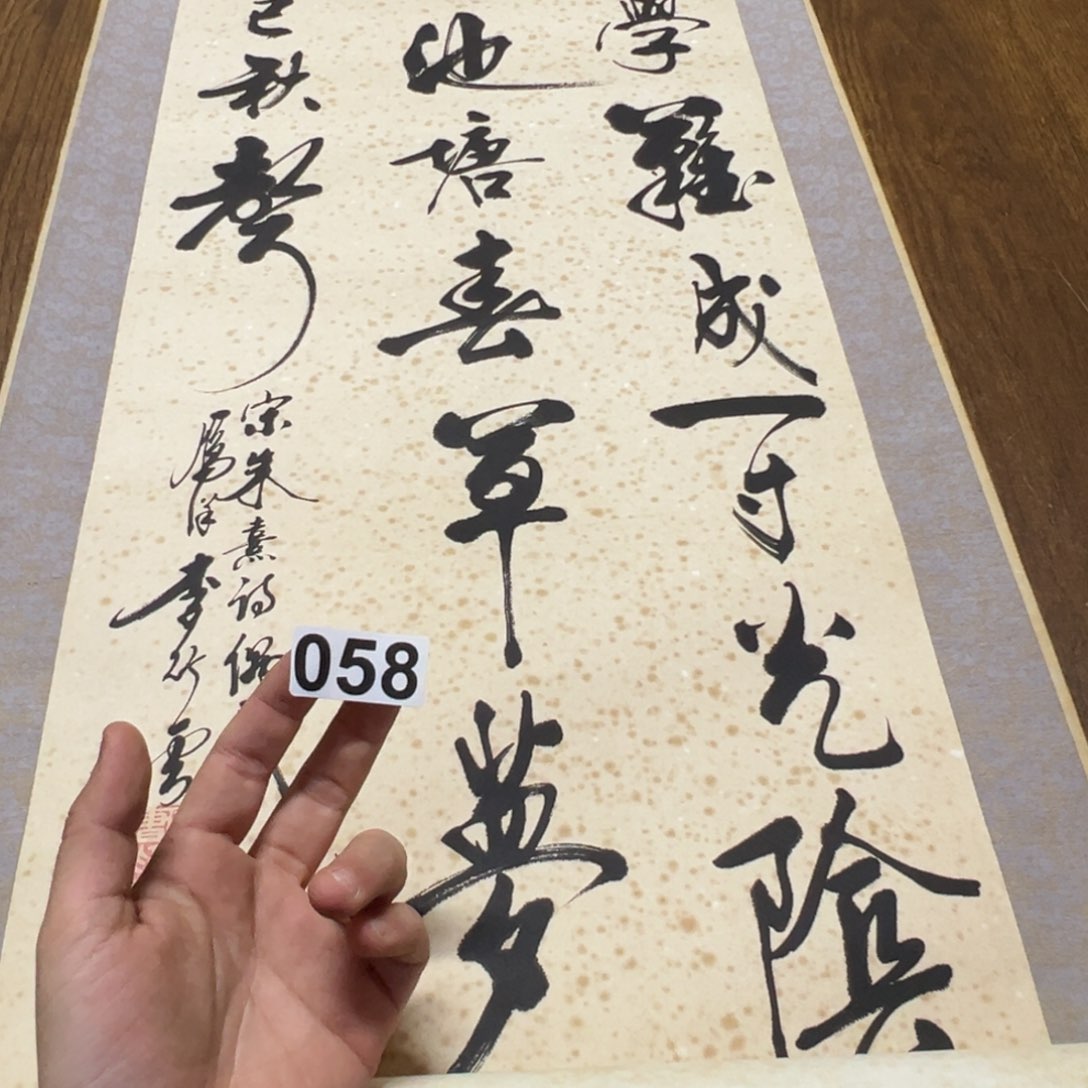 學難成一寸光陰
池塘春草夢
已秋聲
宋朱熹詩
李竹雲
058